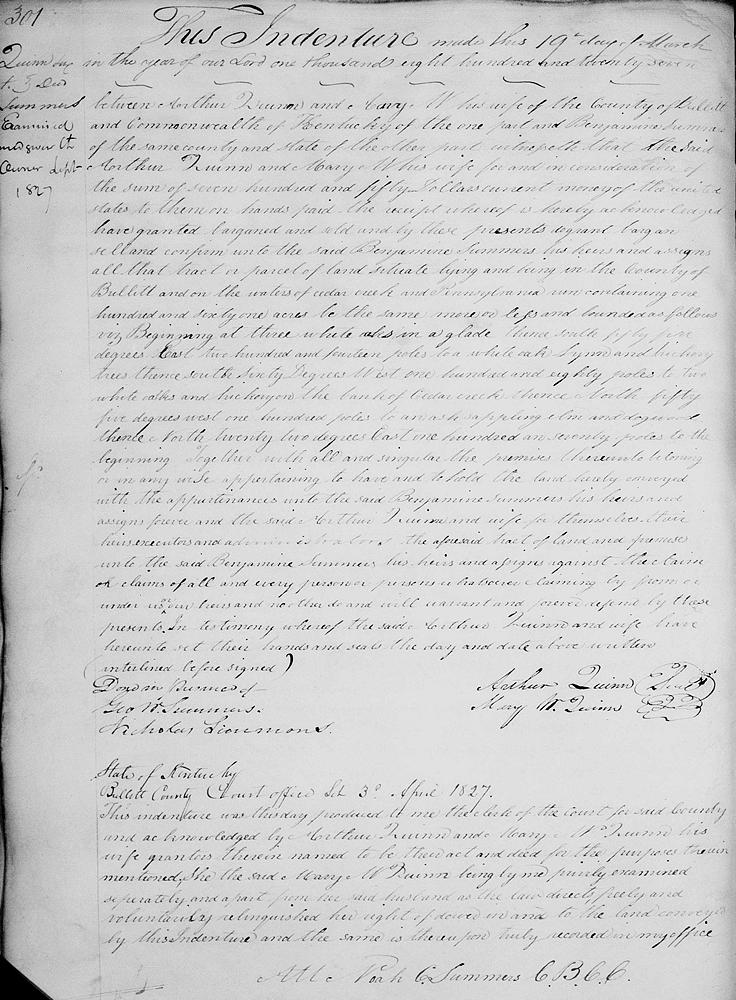 301
This Indenture made this 19th day of March
in the year of our Lord one thousand eight hundred and twenty seven
Quinn &ux
to } Deed
Summers
Examined
Owner Sept
1827
between Arthur Quinn and Mary W his wife of the County of Bullitt
and Commonwealth of Kentucky of the one part and Benjamine Summers
of the same county and state of the other part witnesseth that the said
Arthur Quinn and Mary W his wife for and in consideration of
the sum of seven hundred and fifty Dollars current money of the united
states to them on hands paid the receipt whereof is hereby acknowledged
have granted bargained and sold and by these presents do grant bargan
sell and confirm unto the said Benjamine Summers his heirs and assigns
all that tract or parcel of land situate lying and being in the County of
Bullitt and on the waters of cedar creek and Pennsylvania run containing one
hundred and sixty one acres be the same more or less and bounded as follows
viz Beginning at three white oaks in a glade thence south fifty five
degrees East two hundred and fourteen poles to a white oak Lynn and hickory
trees thence south sixty Degrees West one hundred and eighty poles to two
white oaks and hickory on the bank of Cedar creek thence North fifty
five degrees west one hundred poles to an ash sappling elm and dogwood
thence North twenty two degrees East one hundred an seventy poles to the
beginning Together with all and singular the premises thereunto belonging
or in any wise appertaining to have and to hold the land hereby conveyed
with the appurtenances unto the said Benjamine Summers his heirs and
assigns forever and the said Arthur Quinn and wife for themselves their
heirs executors and administrators the aforesaid tract of land and premises
unto the said Benjamine Summers his heirs and assigns against the claim
or claims of all and every person or persons whatsoever claiming by from or
under us or our heirs and no other do and will warrant and forever defend by these
presents. In testimony whereof the said Arthur Quinn and wife have
hereunto set their hands and seals the day and date above written
(interlined before signed)
Geo W. Summers.
Nicholas Simmons.
Arthur Quinn (Seal)
Mary W. Quinn
State of Kentucky
Bullitt County Court office Sct 3d April 1827.
This indenture was this day produced to me the clerk of the court for said County
and acknowledged by Arthur Quinn and Mary W Quinn his
wife grantors therein named to be their act and deed for the purposes therein
mentioned, She the said Mary W Quinn being by me privily examined
seperately and apart from her said husband as the law directs freely and
voluntarily relinquished her right of dower in and to the land conveyed
by this Indenture and the same is thereupon truly recorded in my office
Att Noah C. Summers C B C C.